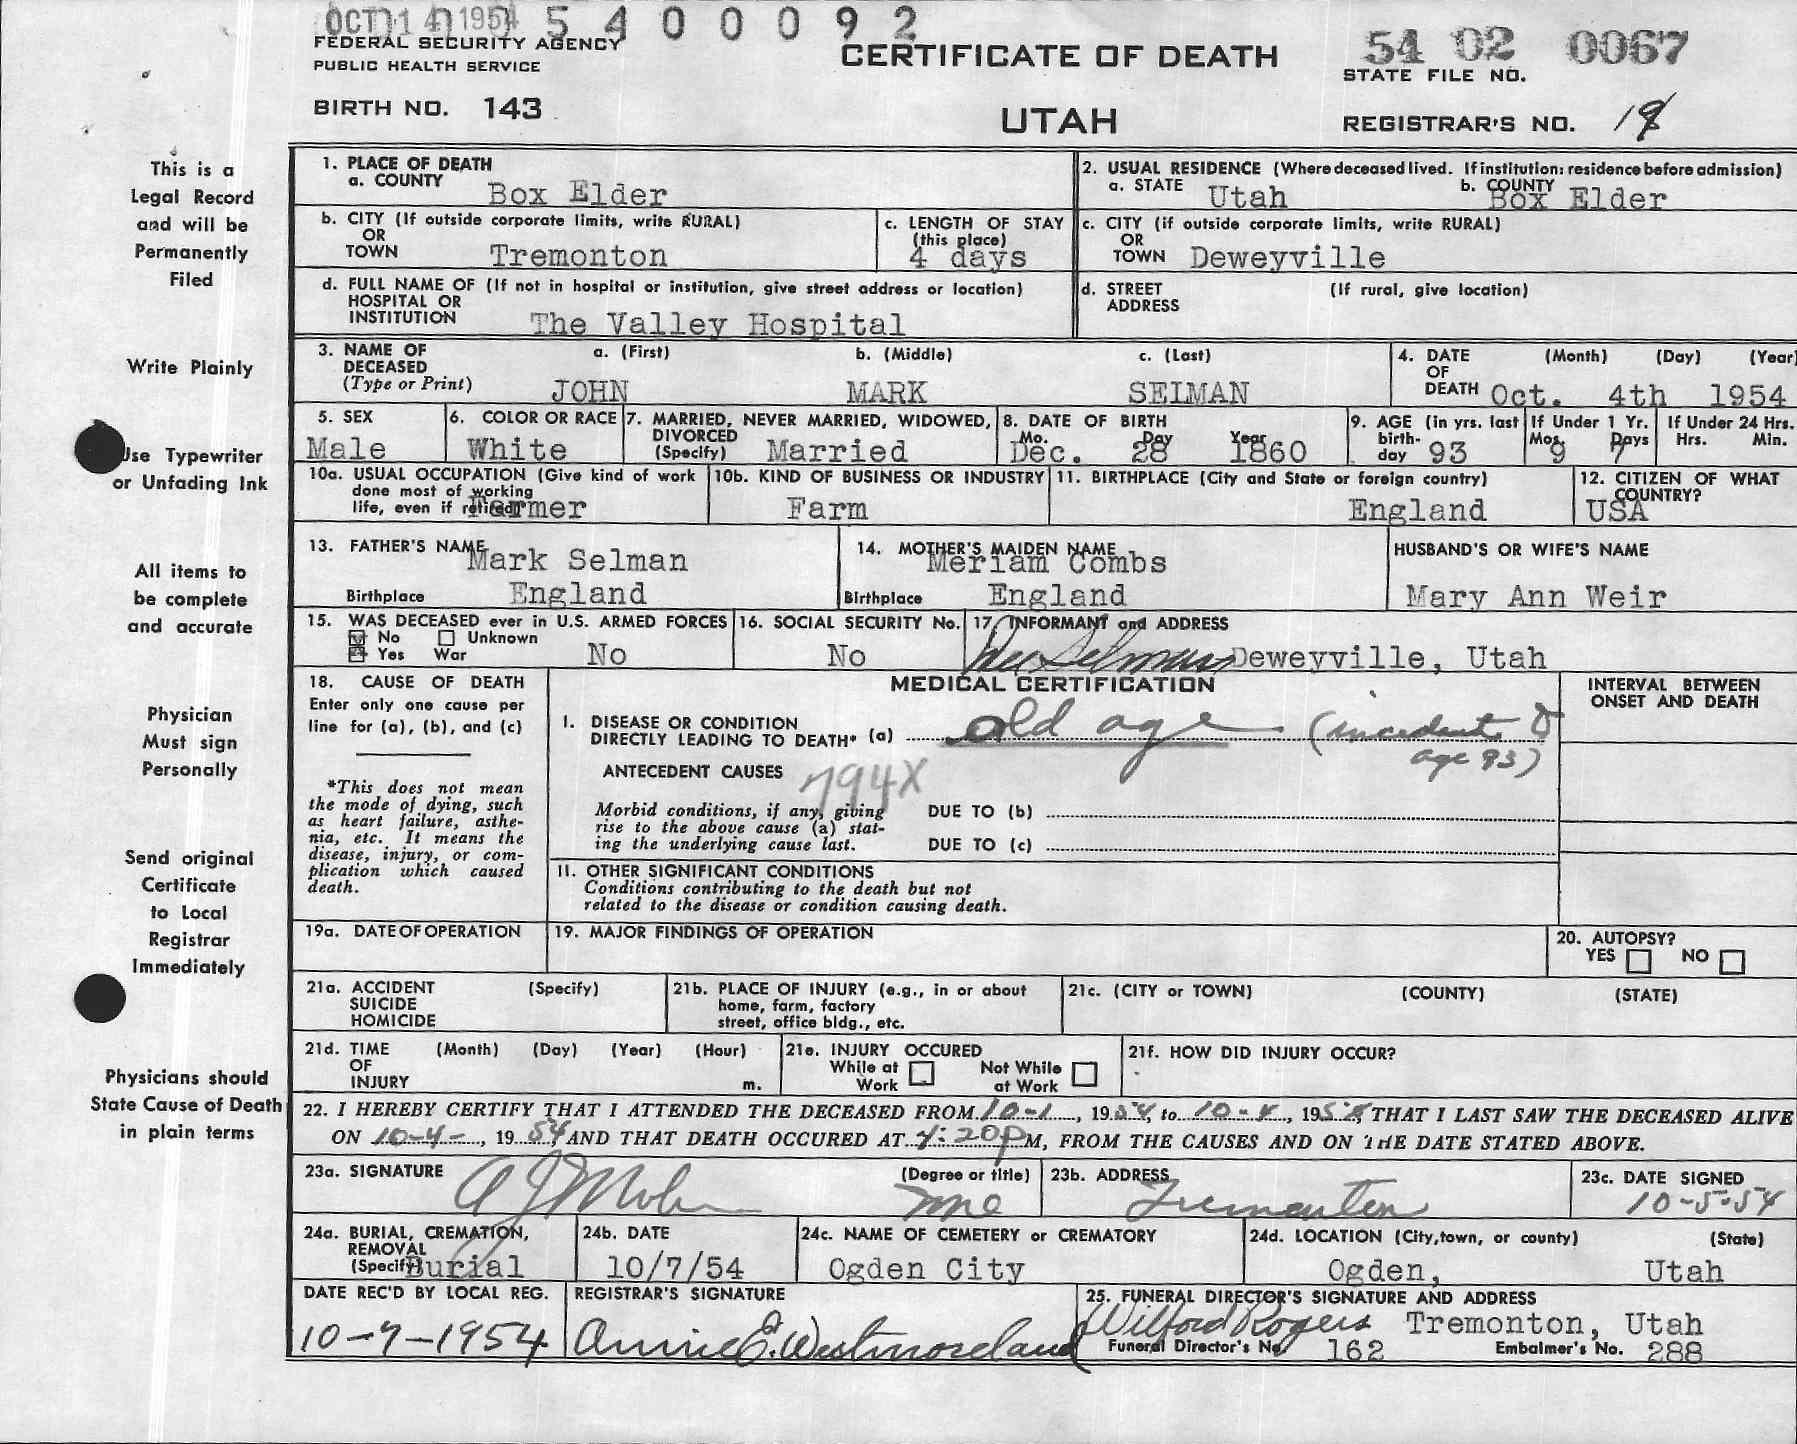 OCT 14 1954 5 4 0 0 0 9 2
FEDERAL SECURITY AGENCY
PUBLIC HEALTH SERVICE
CERTIFICATE OF DEATH
54 02 0067
STATE FILE NO.
BIRTH NO. 143
UTAH
REGISTRAR'S NO.
This is a
Legal Record
and will be
Permanently
Filed
Write Plainly
Use Typewriter
or Unfading Ink
All items to
be complete
and accurate
Physician
Must sign
Personally
Send original
Certificate
to Local
Registrar
Immediately
Physicians should
State Cause of Death
in plain terms
1. PLACE OF DEATH
a. COUNTY Box Elder
2. USUAL RESIDENCE (Where deceased lived. If institution: residence before admission)
a. STATE Utah b. COUNTY Box Elder
b. CITY (If outside corporate limits, write RURAL)
OR
TOWN Tremonton
c. LENGTH OF STAY
(this place)
4 days
c. CITY (if outside corporate limits, write RURAL)
OR
TOWN Deweyville
d. FULL NAME OF (If not in hospital or institution, give street address or location)
HOSPITAL OR
INSTITUTION The Valley Hospital
d. STREET (If rural, give location)
ADDRESS
3. NAME OF
DECEASED
(Type or Print)
a. (First) b. (Middle) c. (Last)
JOHN MARK SELMAN
4. DATE (Month) (Day) (Year)
OF
DEATH Oct. 4th 1954
5. SEX
Male
6. COLOR OR RACE
White
7. MARRIED, NEVER MARRIED, WIDOWED,
DIVORCED
(Specify) Married
8. DATE OF BIRTH
Mo. Day Year
Dec. 28 1860
9. AGE (in yrs. last
birth-
day 93
If Under 1 Yr.
Mos. Days
9 7
If Under 24 Hrs.
Hrs. Min.
10a. USUAL OCCUPATION (Give kind of work
done most of working
life, even if retired) Farmer
10b. KIND OF BUSINESS OR INDUSTRY
Farm
11. BIRTHPLACE (City and State or foreign country)
England
12. CITIZEN OF WHAT
COUNTRY?
USA
13. FATHER'S NAME Mark Selman
Birthplace England
14. MOTHER'S MAIDEN NAME
Meriam Combs
Birthplace England
HUSBAND'S OR WIFE'S NAME
Mary Ann Weir
15. WAS DECEASED ever in U.S. ARMED FORCES
No Unknown
Yes War No
16. SOCIAL SECURITY No.
No
17. INFORMANT and ADDRESS
Selman Deweyville, Utah
18. CAUSE OF DEATH
Enter only one cause per
line for (a), (b), and (c)
*This does not mean
the mode of dying, such
as heart failure, asthe-
nia, etc. It means the
disease, injury, or com-
plication which caused
death.
MEDICAL CERTIFICATION
INTERVAL BETWEEN
ONSET AND DEATH
I. DISEASE OR CONDITION
DIRECTLY LEADING TO DEATH* (a) old age (incedent to
age 93)
ANTECEDENT CAUSES 794X
Morbid conditions, if any, giving
rise to the above cause (a) stat-
ing the underlying cause last.
DUE TO (b)
DUE TO (c)
II. OTHER SIGNIFICANT CONDITIONS
Conditions contributing to the death but not
related to the disease or condition causing death.
19a. DATE OF OPERATION
19. MAJOR FINDINGS OF OPERATION
20. AUTOPSY?
YES NO
21a. ACCIDENT (Specify)
SUICIDE
HOMICIDE
21b. PLACE OF INJURY (e.g., in or about
home, farm, factory
street, office bldg., etc.
21c. (CITY or TOWN) (COUNTY) (STATE)
21d. TIME (Month) (Day) (Year) (Hour)
OF
INJURY m.
21e. INJURY OCCURED
While at Work Not While at Work
21f. HOW DID INJURY OCCUR?
22. I HEREBY CERTIFY THAT I ATTENDED THE DECEASED FROM 10-1, 1954, to 10-4, 1954, THAT I LAST SAW THE DECEASED ALIVE
ON 10-4-, 1954 AND THAT DEATH OCCURED AT 4:20 pM, FROM THE CAUSES AND ON THE DATE STATED ABOVE.
23a. SIGNATURE (Degree or title)
23b. ADDRESS
Tremonton
23c. DATE SIGNED
10-5-54
24a. BURIAL, CREMATION,
REMOVAL
(Specify) Burial
24b. DATE
10/7/54
24c. NAME OF CEMETERY or CREMATORY
Ogden City
24d. LOCATION (City, town, or county) (State)
Ogden, Utah
DATE REC'D BY LOCAL REG.
10-7-1954
REGISTRAR'S SIGNATURE
Annie E. Westmoreland
25. FUNERAL DIRECTOR'S SIGNATURE AND ADDRESS
Wilford Rogers Tremonton, Utah
Funeral Director's No. 162 Embalmer's No. 288